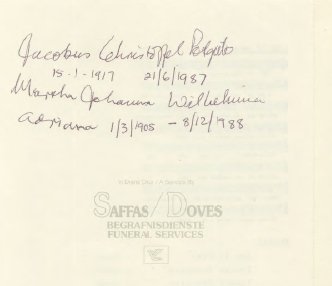 Jacobus Christoffel Pelgrto
15-1-1917 21/6/1987
Martha Johanna Wilhelmina
adriana 1/3/1905 - 8/12/1988
SAFFAS / DOVES
BEGRAFNISDIENSTE
FUNERAL SERVICES